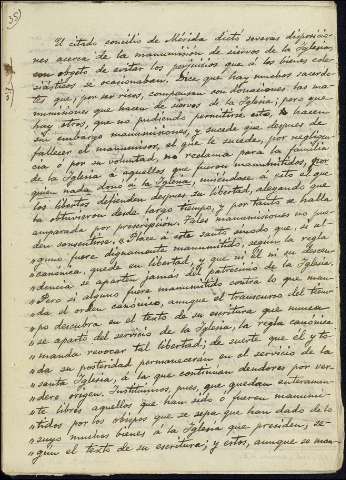 35)
El citado concilio de Mérida dictó severas disposicio-
nes acerca de la manumisión de siervos de la Iglesia,
con objeto de evitar los perjuicios que á los bienes ecle-
siásticos se ocasionaban. Dice que hay muchos sacerdo-
tes que, por ser ricos, compensan con donaciones las ma-
numisiones que hacen de siervos de la Iglesia; pero que
hay otros, que no pudiendo permitirse esto, hacen
sin embargo manumisiones, y sucede que despues de
fallecer el manumisor, el que le sucede, por negligen-
cia ó por su voluntad, no reclama para la familia
de la Iglesia á aquellos que fueron manumitidos, por
quien nada donó á la Iglesia, uniéndose á esto el que
los libertos defienden despues su libertad, alegando que
la obtuvieron desde largo tiempo, y por tanto se halla
amparada por prescripcion. Tales manumisiones no pue-
den consentirse. «Place á este santo sínodo que, si al-
«guno fuere dignamente manumitido, segun la regla
«canónica, quede en libertad, y que ni él ni su descen-
«dencia se aparten jamás del patrocinio de la Iglesia.
«Pero si alguno fuere manumitido contra lo que man-
«da el orden canónico, aunque el transcurso del tiem-
«po descubra en el texto de su escritura que nunca
«se apartó del servicio de la Iglesia, la regla canónica
«manda revocar tal libertad; de suerte que él y to-
«da su posteridad permanecerán en el servicio de la
«santa Iglesia, á la que continúan deudores por ver-
«dero origen. Instituimos, pues, que quedan enteramen-
«te libres aquellos que han sido ó fueren manumi-
«tidos por los obispos que se sepa que han dado de lo
«suyo muchos bienes á la Iglesia que presiden, se-
«gún el texto de su escritura; y estos, aunque se man-